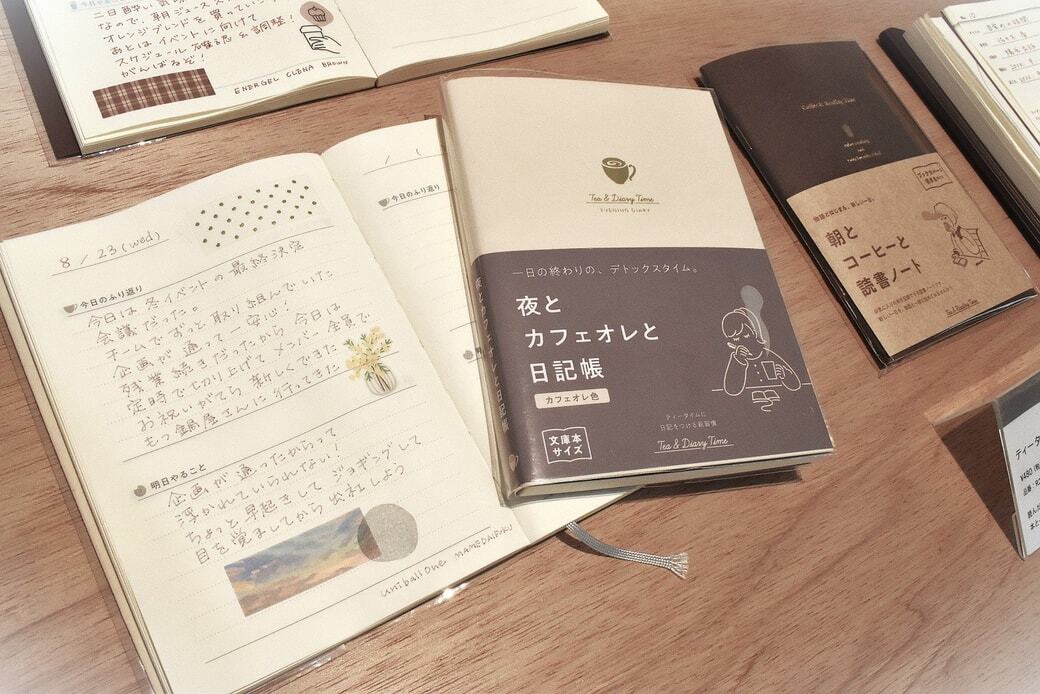 今日
二日酔い気
なので、朝ジュースス
オレンジブレンドを買っていこ
あとはイベントに向けて
スケジュール確認&調整!
がんばるぞ!
ENERGEL CLENA BROWN
8/23(wed)
今日のふり返り
今日は冬イベントの最終決定
会議だった。
チームでずっと取り組んでいた
企画が通って一安心!
残業続きだったから今日は
定時で切り上げてメンバー全員で
お祝いがてら新しくできた
もつ鍋屋さんに行ってきた
明日やること
企画が通ったからって
浮かれていられない!
ちょっと早起きして ジョギングして
目を覚ましてから出社しよう
uniball one MAME DAIFUKU
/ (
今日のふり返り
明
Tea & Diary Time
EVENING DIARY
一日の終わりの、デトックスタイム。
夜と
カフェオレと
日記帳
カフェオレ色
文庫本
サイズ
ティータイムに
日記をつける新習慣
Tea & Diary Time
夜とカフェオレと日記帳
Coffee & Reading Time
ブックカバーに
朝と
コーヒーと
読書ノート
Tea & Reading Time
ティータ
¥480
品番